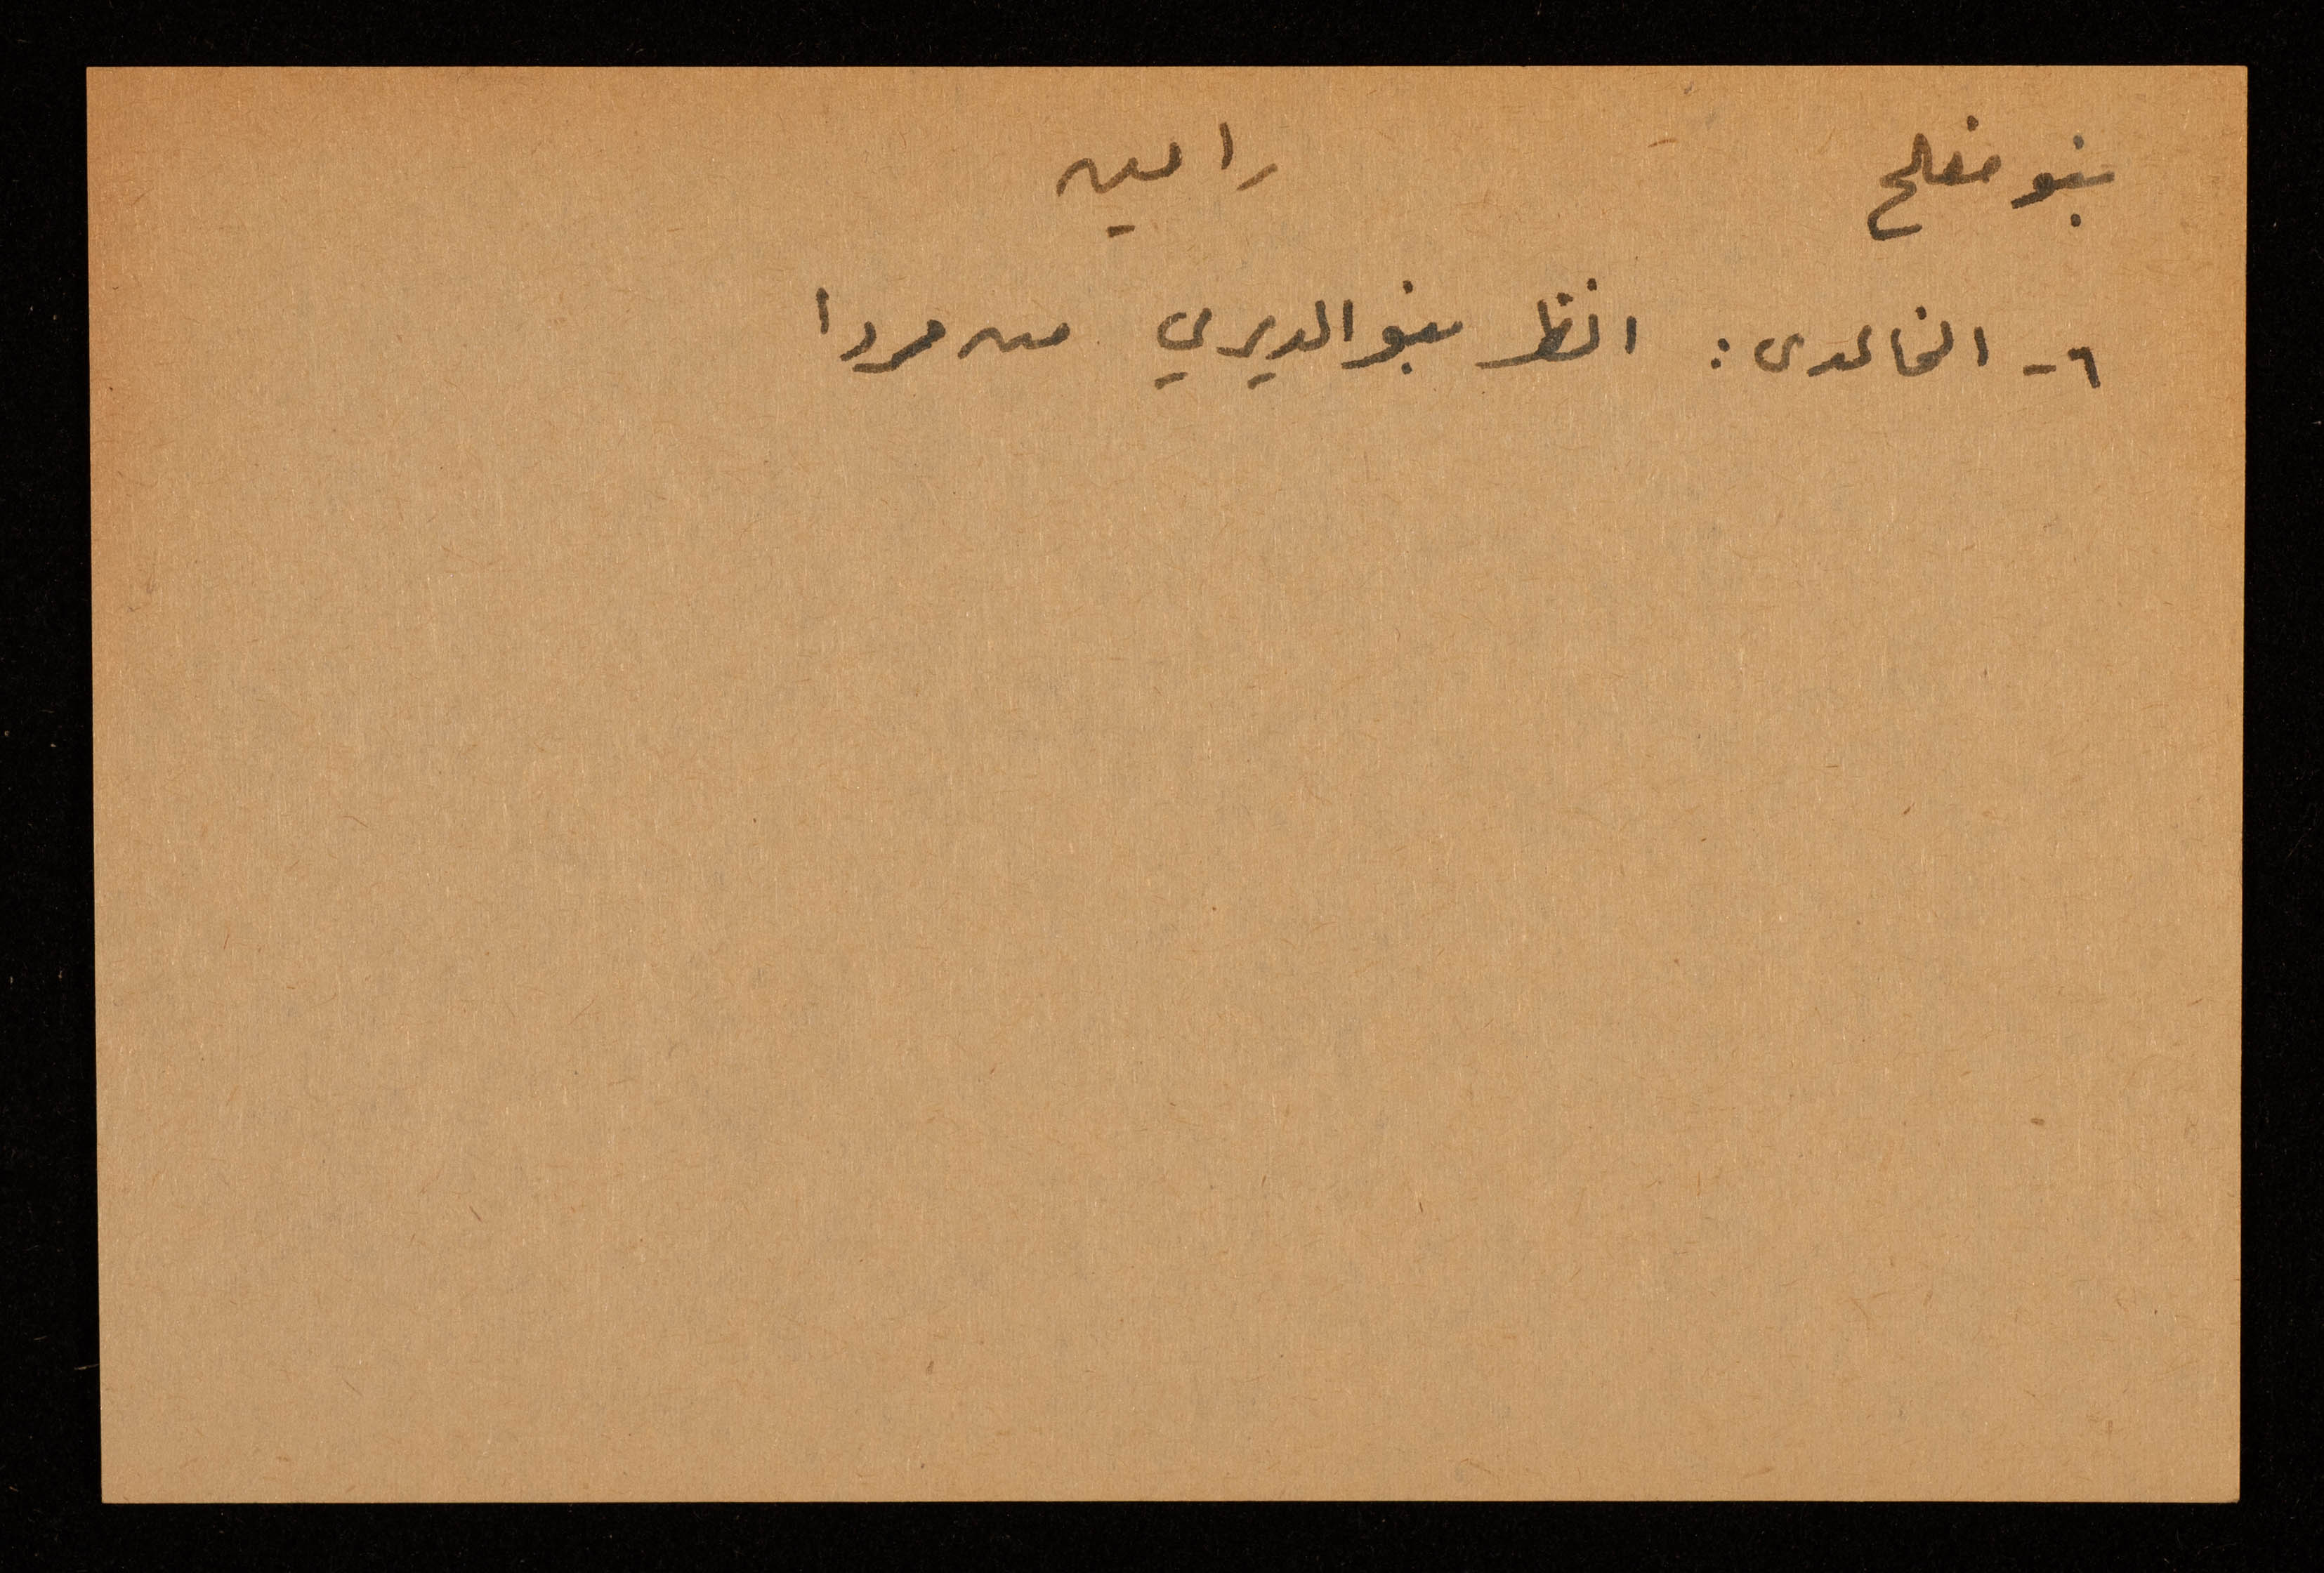 بنو مفلح رامين
٦- الخالدى : انظر بنو الديري من مردا